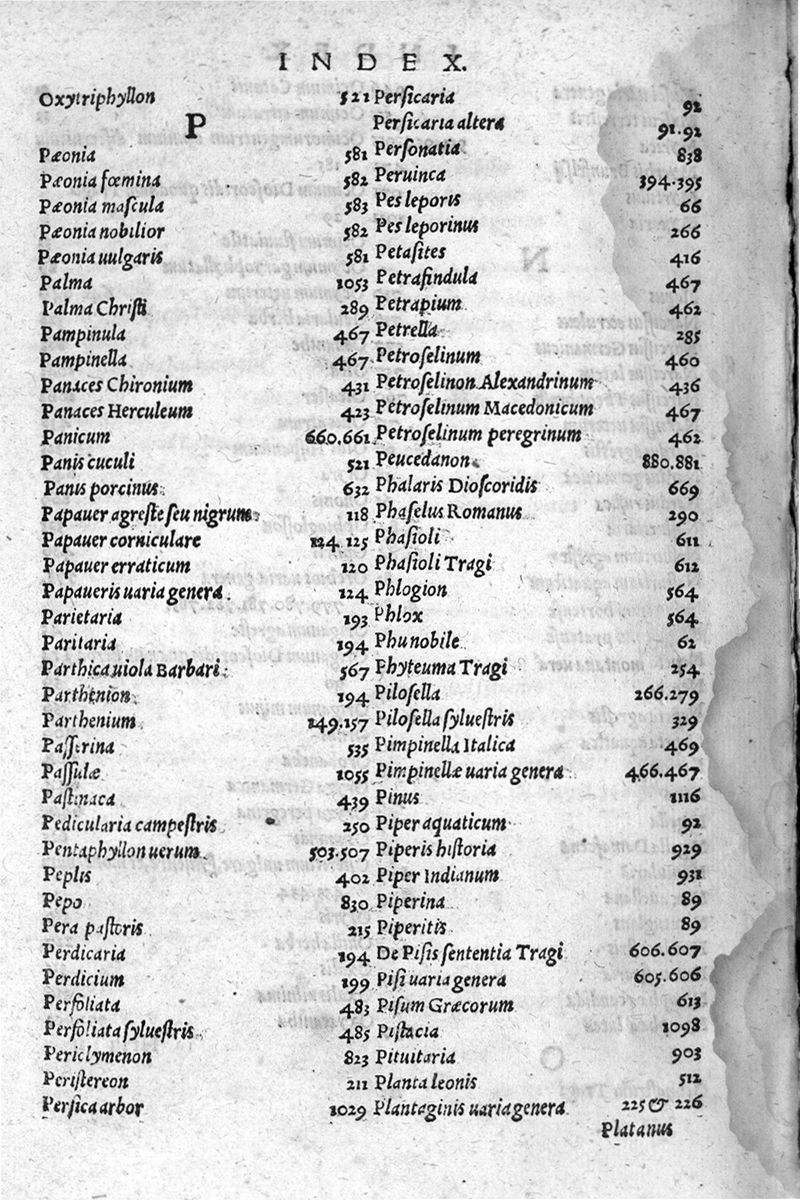 INDEX.
Oxytriphyllon 521
P
Pæonia 581
Pæonia fœmina 582
Pæonia maſcula 583
Pæonia nobilior 582
Pæonia uulgaris 581
Palma 1053
Palma Chriſti 289
Pampinula 467
Pampinella 467
Panaces Chironium 431
Panaces Herculeum 423
Panicum 660.661
Panis cuculi 521
Panis porcinus 632
Papauer agreſte ſeu nigrum 118
Papauer corniculare 124.125
Papauer erraticum 120
Papaueris uaria genera 124
Parietaria 193
Paritaria 194
Parthica uiola Barbari 567
Parthenion 194
Parthenium 149.157
Paſſerina 535
Paſſulæ 1055
Paſtinaca 439
Pedicularia campeſtris 250
Pentaphyllon uerum 503.507
Peplis 402
Pepo 830
Pera paſtoris 215
Perdicaria 194
Perdicium 199
Perfoliata 483
Perfoliata ſylueſtris 485
Periclymenon 823
Periſtereon 211
Perſica arbor 1029
Perſicaria 92
Perſicaria altera 91.92
Perſonatia 838
Peruinca 394.395
Pes leporis 66
Pes leporinus 266
Petaſites 416
Petraſindula 467
Petrapium 462
Petrella 285
Petroſelinum 460
Petroſelinon Alexandrinum 436
Petroſelinum Macedonicum 467
Petroſelinum peregrinum 462
Peucedanon 880.881
Phalaris Dioſcoridis 669
Phaſelus Romanus 290
Phaſioli 611
Phaſioli Tragi 612
Phlogion 564
Phlox 564
Phu nobile 62
Phyteuma Tragi 254
Piloſella 266.279
Piloſella ſylueſtris 329
Pimpinella Italica 469
Pimpinellæ uaria genera 466.467
Pinus 1116
Piper aquaticum 92
Piperis hiſtoria 929
Piper Indianum 931
Piperina 89
Piperitis 89
De Piſis ſententia Tragi 606.607
Piſi uaria genera 605.606
Piſum Græcorum 613
Piſtacia 1098
Pituitaria 903
Planta leonis 512
Plantaginis uaria genera 225 & 226
Platanus